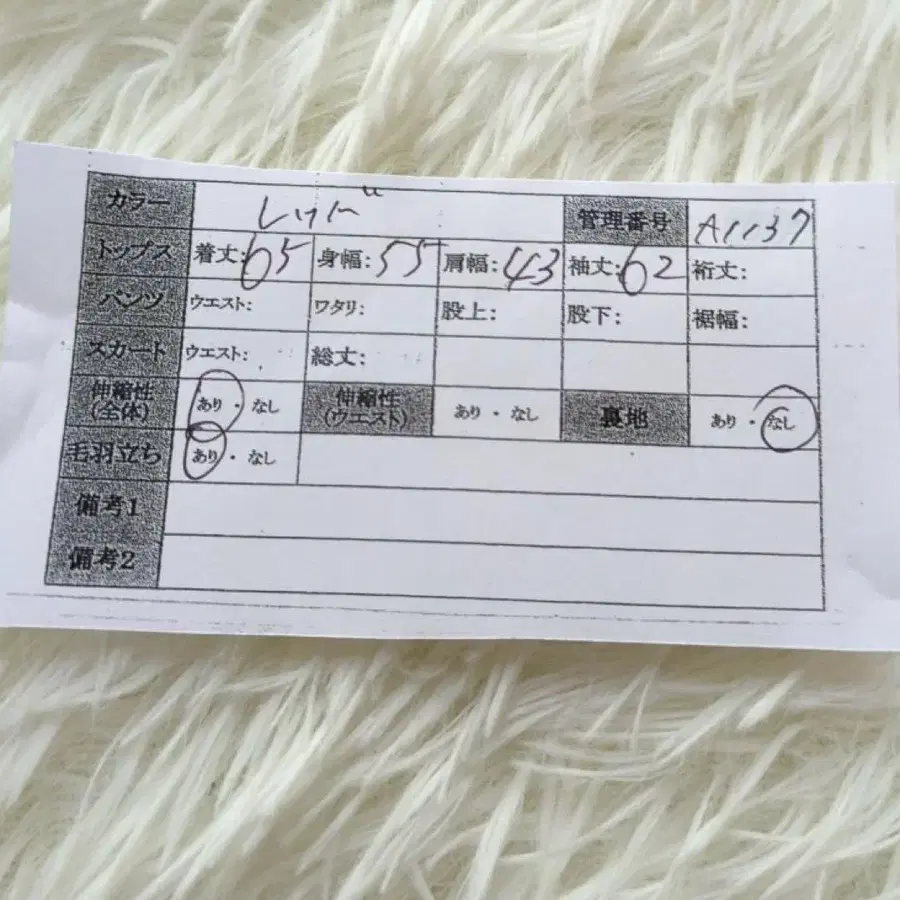 カラー レッド 管理番号 A1137
トップス 着丈:65 身幅:55 肩幅:43 袖丈:62 裄丈:
パンツ ウエスト: ワタリ: 股上: 股下: 裾幅:
スカート ウエスト: 総丈:
伸縮性(全体) あり・なし 伸縮性(ウエスト) あり・なし 裏地 あり・なし
毛羽立ち あり・なし
備考1
備考2